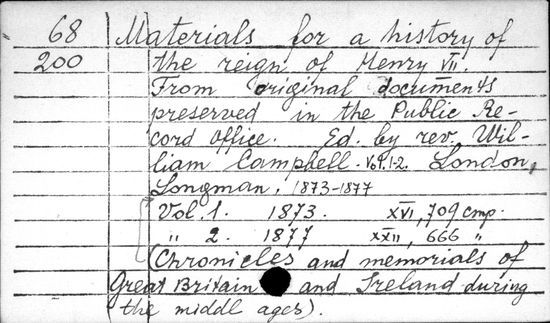 68 Materials for a history of
200 the reign of Henry VII.
From original documents
preserved in the Public Re-
cord Office. Ed. by rev. Wil-
liam Campbell. Vol. 1-2. London,
Longman, 1873-1877
Vol. 1. 1873. XVI, 709 стр.
" 2. 1877 XXII, 666 "
(Chronicles and memorials of
Great Britain and Ireland during
the middl ages).